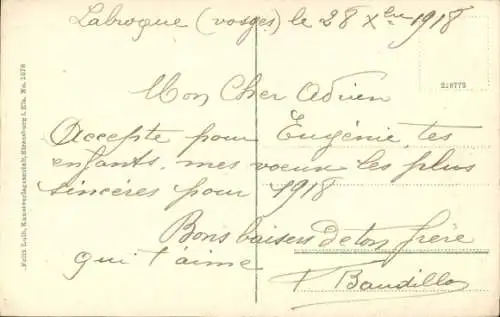 Labroque (vosges) le 28 Xbre 1918
218775
Mon Cher Adrien
Accepte pour Eugénie, tes
enfants, mes voeux les plus
sincères pour 1918
Bons baisers de ton frère
qui t'aime
F Baudillo
Felix Luib, Kunstverlagsanstalt, Strassburg i. Els. No. 1578